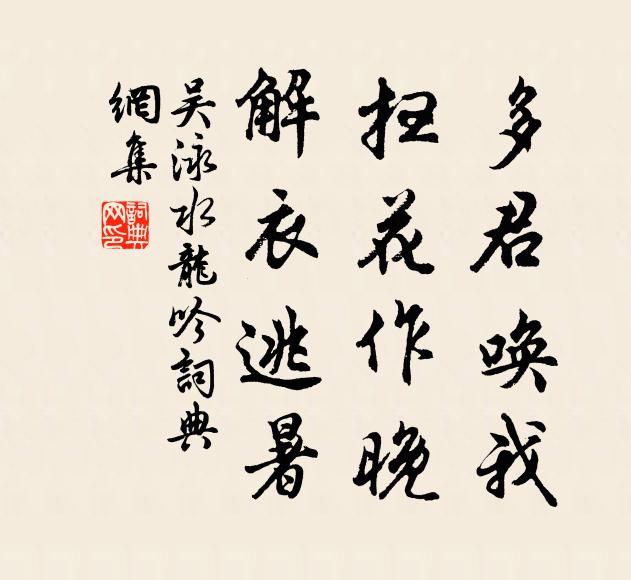 多君唤我
扫花作晚
解衣逃暑
吳泳水龍吟詞典
網集
詞典
网印